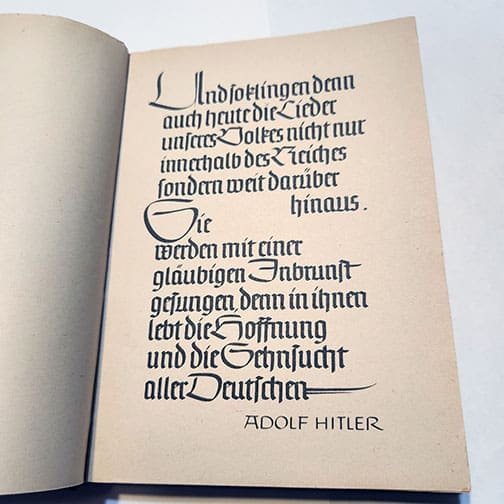 Und so klingen denn
auch heute die Lieder
unseres Volkes nicht nur
innerhalb des Reiches
sondern weit darüber
hinaus.
Sie
werden mit einer
gläubigen Inbrunst
gesungen, denn in ihnen
lebt die Hoffnung
und die Sehnsucht
aller Deutschen
ADOLF HITLER